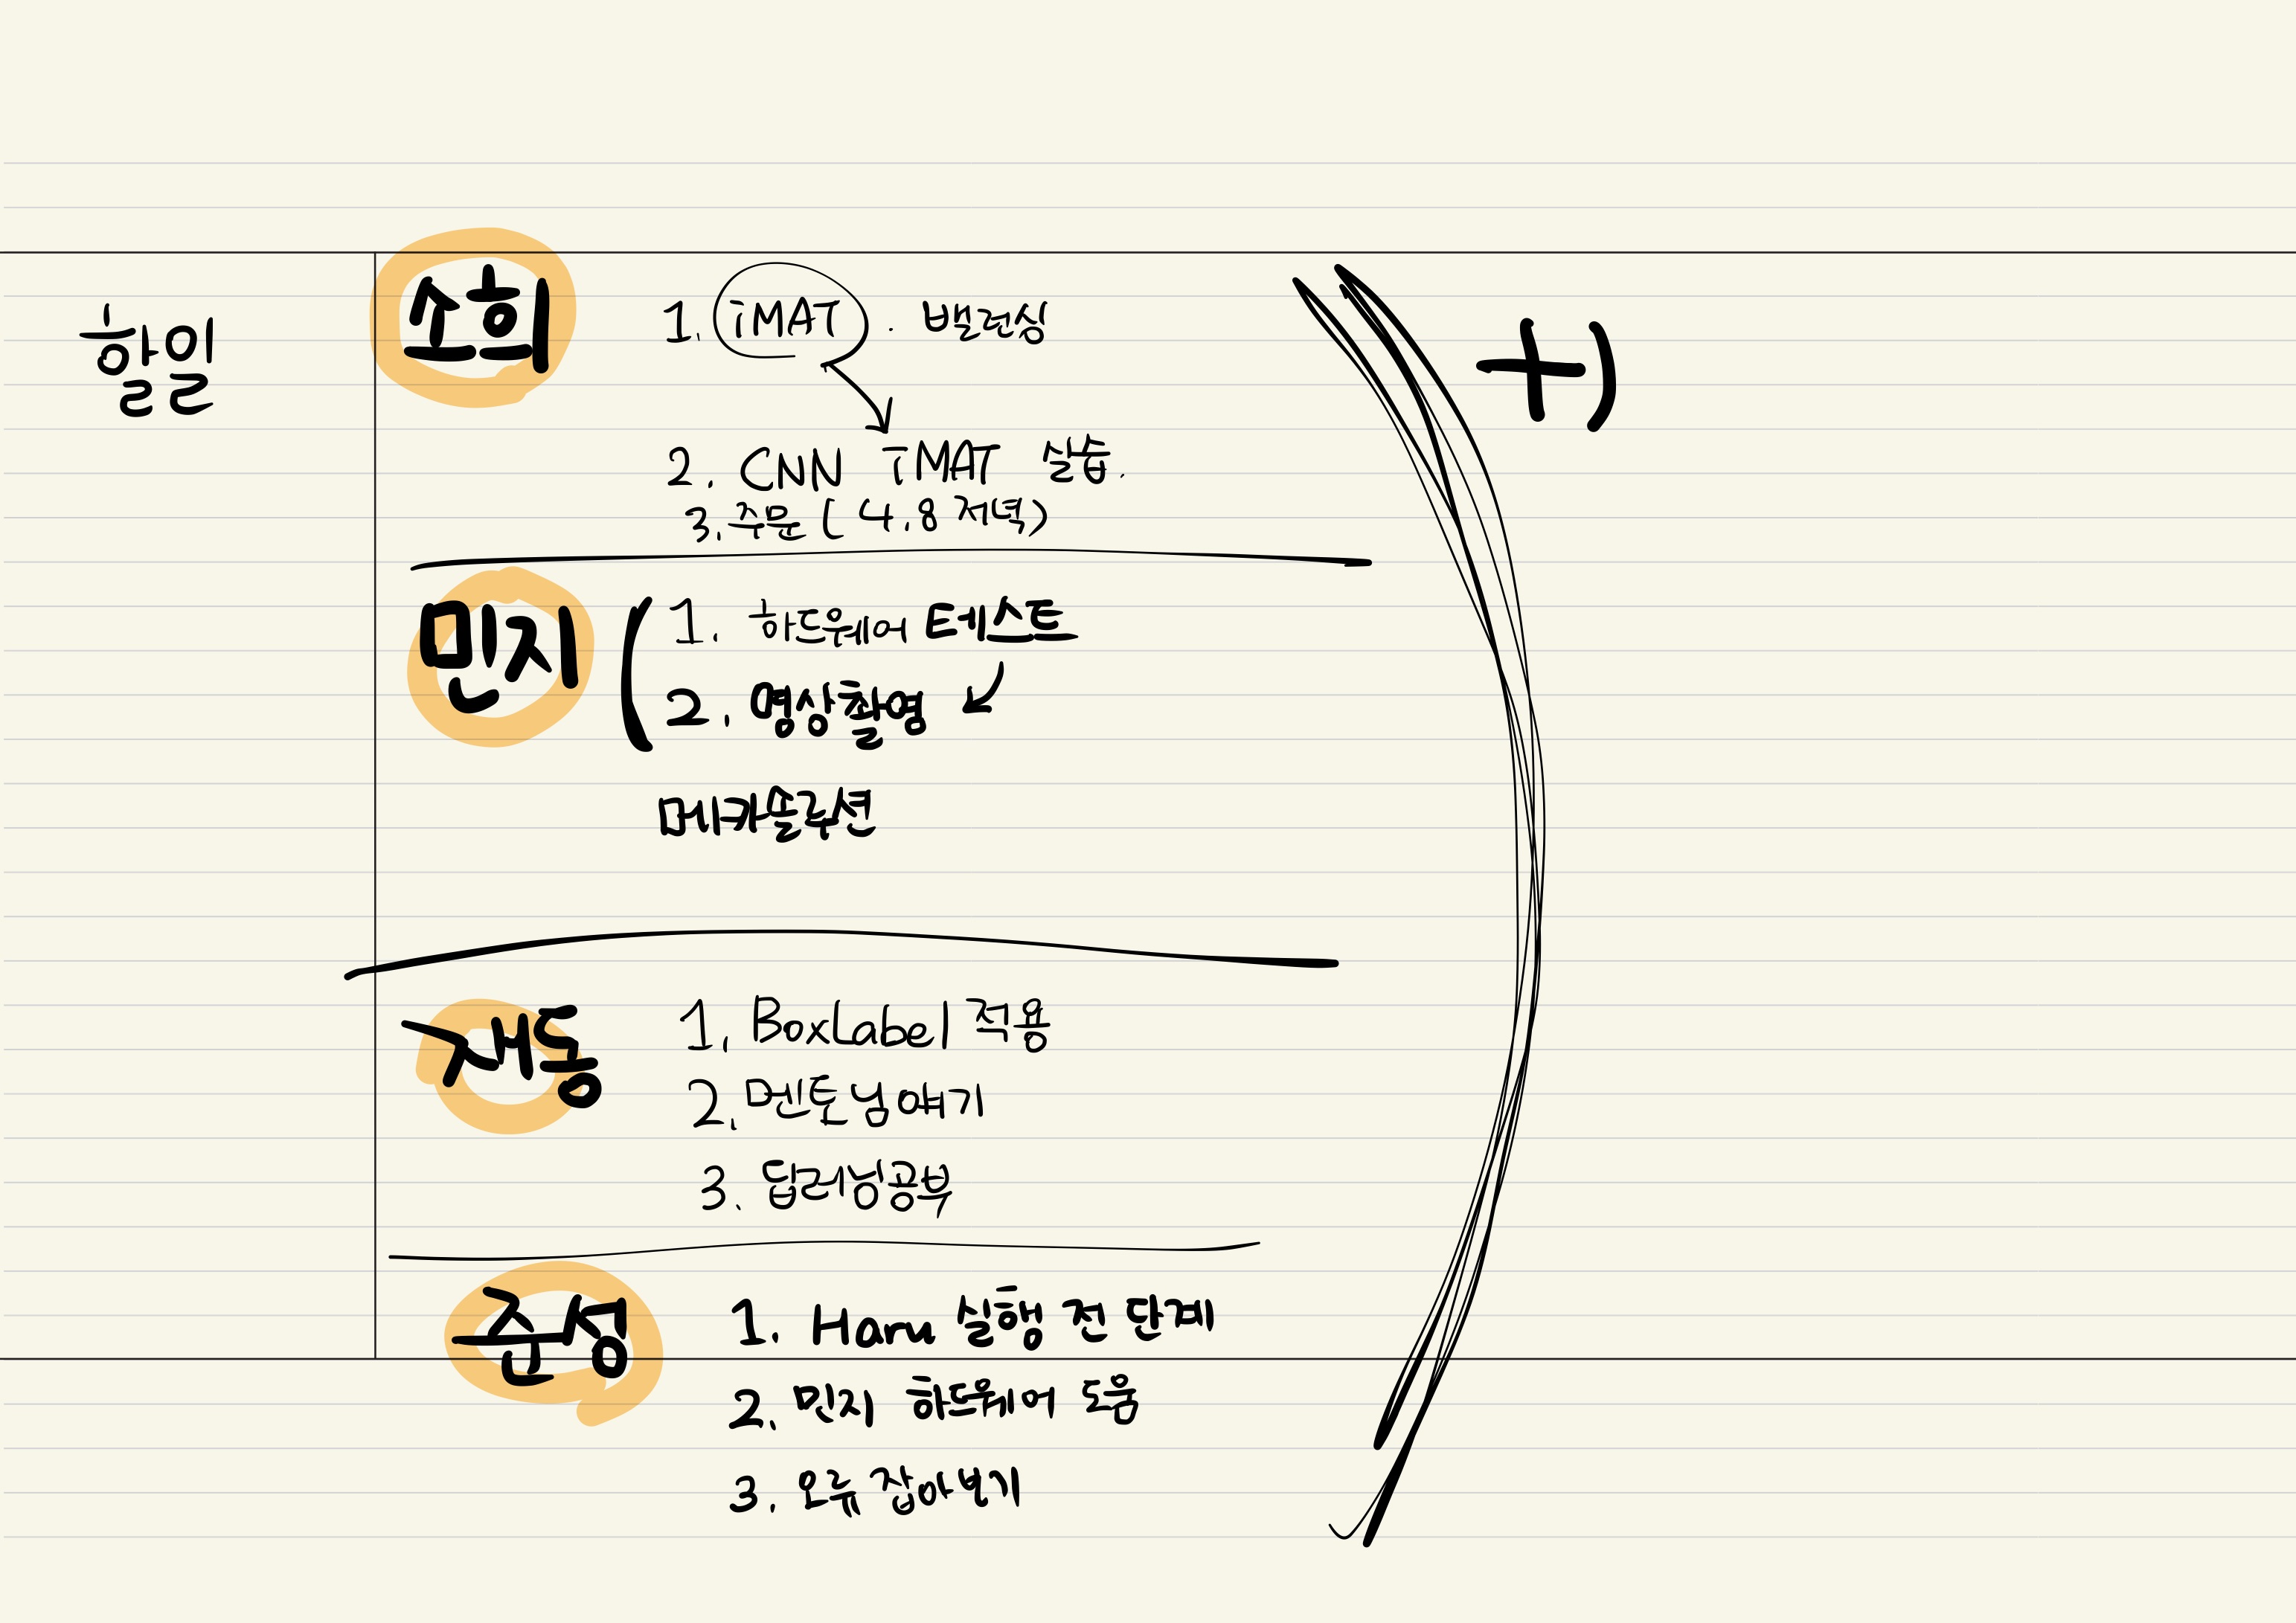 할일
소회
1. iMAT.
2. CNN iMAT 실습.
3. 주문 (4.8 저녁)
민지
1. 하드웨어 테스트
2. 영상촬영
메카솔루션
재동
1. BoxLabel 적용
2. 멘토님얘기
3. 딥러닝공부
준성
1. 실행 전 단계
2. 민지 하드웨어 도움
3. 오류 잡아보기
+)